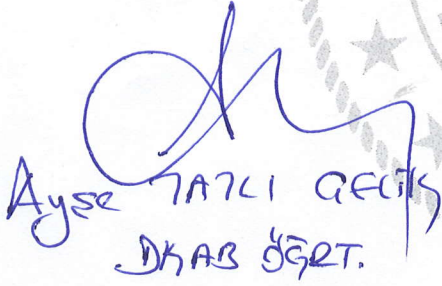 Ayşe TATLI ÇELİK
DKAB ÖĞRT.